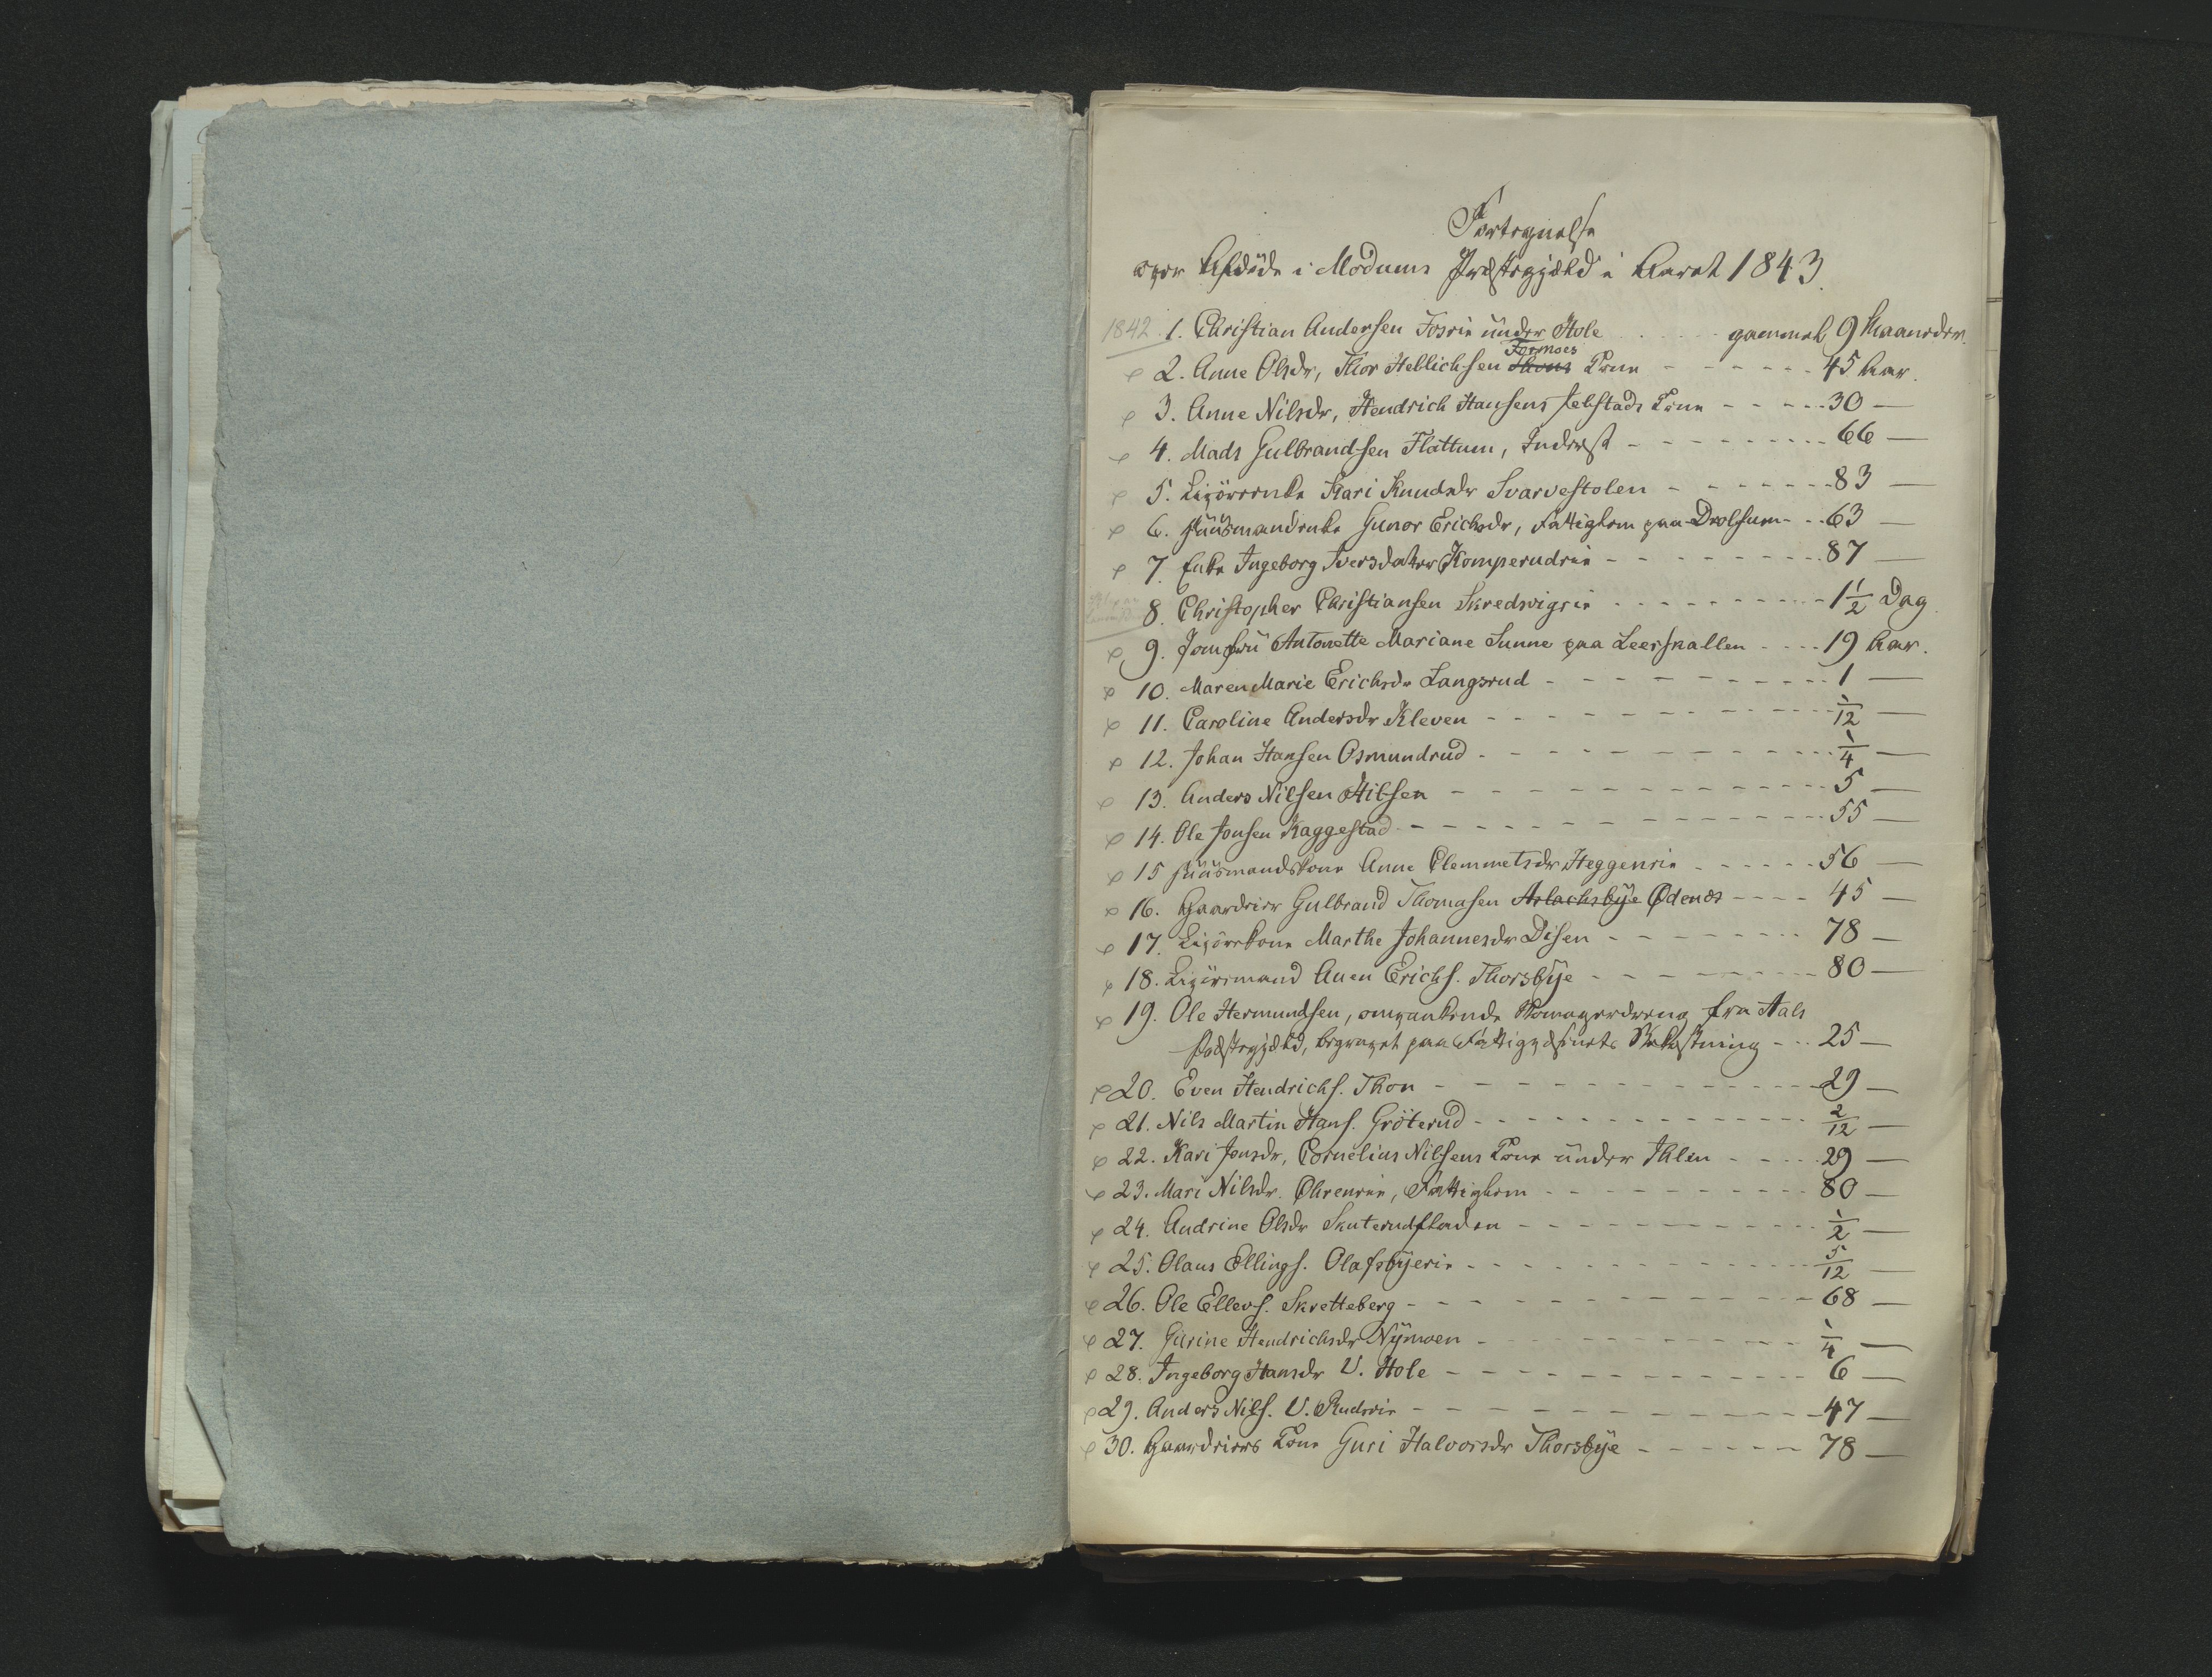 Fortegnelse
over Afdöde i Modums Præstegjæld i Aaret 1843.
1842. 1. Christian Andersen Fosrie under Hole - - - gammel 9 Maaneder.
Formoes
2. Anne Olsdr, Thor Hellichsen Thons Kone - - - 45 Aar.
3. Anne Nilsdr, Hendrich Hansens Kone - - - 30 —
4. Mads Gulbrandsen Flattum, Inderst - - - 66 —
5. Kari Knudsdr Svarvestolen - - - 83 —
6. Huusmandenke Gunor Erichsdr, Fattiglem paa Drolsum - - - 63 —
7. Enke Ingeborg Iversdatter Komperudeie - - - 87 —
8. Christopher Christiansen Skredsvigeie - - - 1 1/2 Dag.
9. Jomfru Antonette Mariane Sunne paa Leerskallen - - - 19 Aar.
10. Maren Marie Erichsdr Langerud - - - 1 —
11. Caroline Andersdr Kleven - - - 1/12 —
12. Johan Hansen Osmundrud - - - 1/4 —
13. Anders Nilsen Hilsen - - - 5 —
14. Ole Jonsen Kaggestad - - - 55 —
15 Huusmandskone Anne Clemmetsdr Heggeneie - - - 56 —
16. Gaardeier Gulbrand Thomasen Aslachsbÿe Ødenæs - - - 45 —
17. Marthe Johannesdr Disen - - - 78 —
18. Auen Erichs. Thorsbÿe - - - 80 —
19. Ole Hermundsen, omvankende Skomagerdreng fra Aals
Præstegjæld, begravet paa Fattigvæsenets Bekostning - - - 25 —
20. Even Hendrichs. Thon - - - 29 —
21. Nils Martin Hans. Gröterud - - - 2/12 —
22. Kari Jensdr, Cornelius Nilsens Kone under Ihlen - - - 29 —
23. Mari Nilsdr. Ohreneie, Fattiglem - - - 80 —
24. Andrine Olsdr Skuterudfladen - - - 1/2 —
25. Olaus Ellings. Olafsbÿeeie - - - 5/12 —
26. Ole Ellevs. Skretteberg - - - 68 —
27. Gurine Hendrichsdr Nÿmoen - - - 1/4 —
28. Ingeborg Hansdr V. Hole - - - 6 —
29. Anders Nils. V. Rudseie - - - 47 —
30. Gaardeiers Kone Guri Halvorsdr Thorsbÿe - - - 78 —